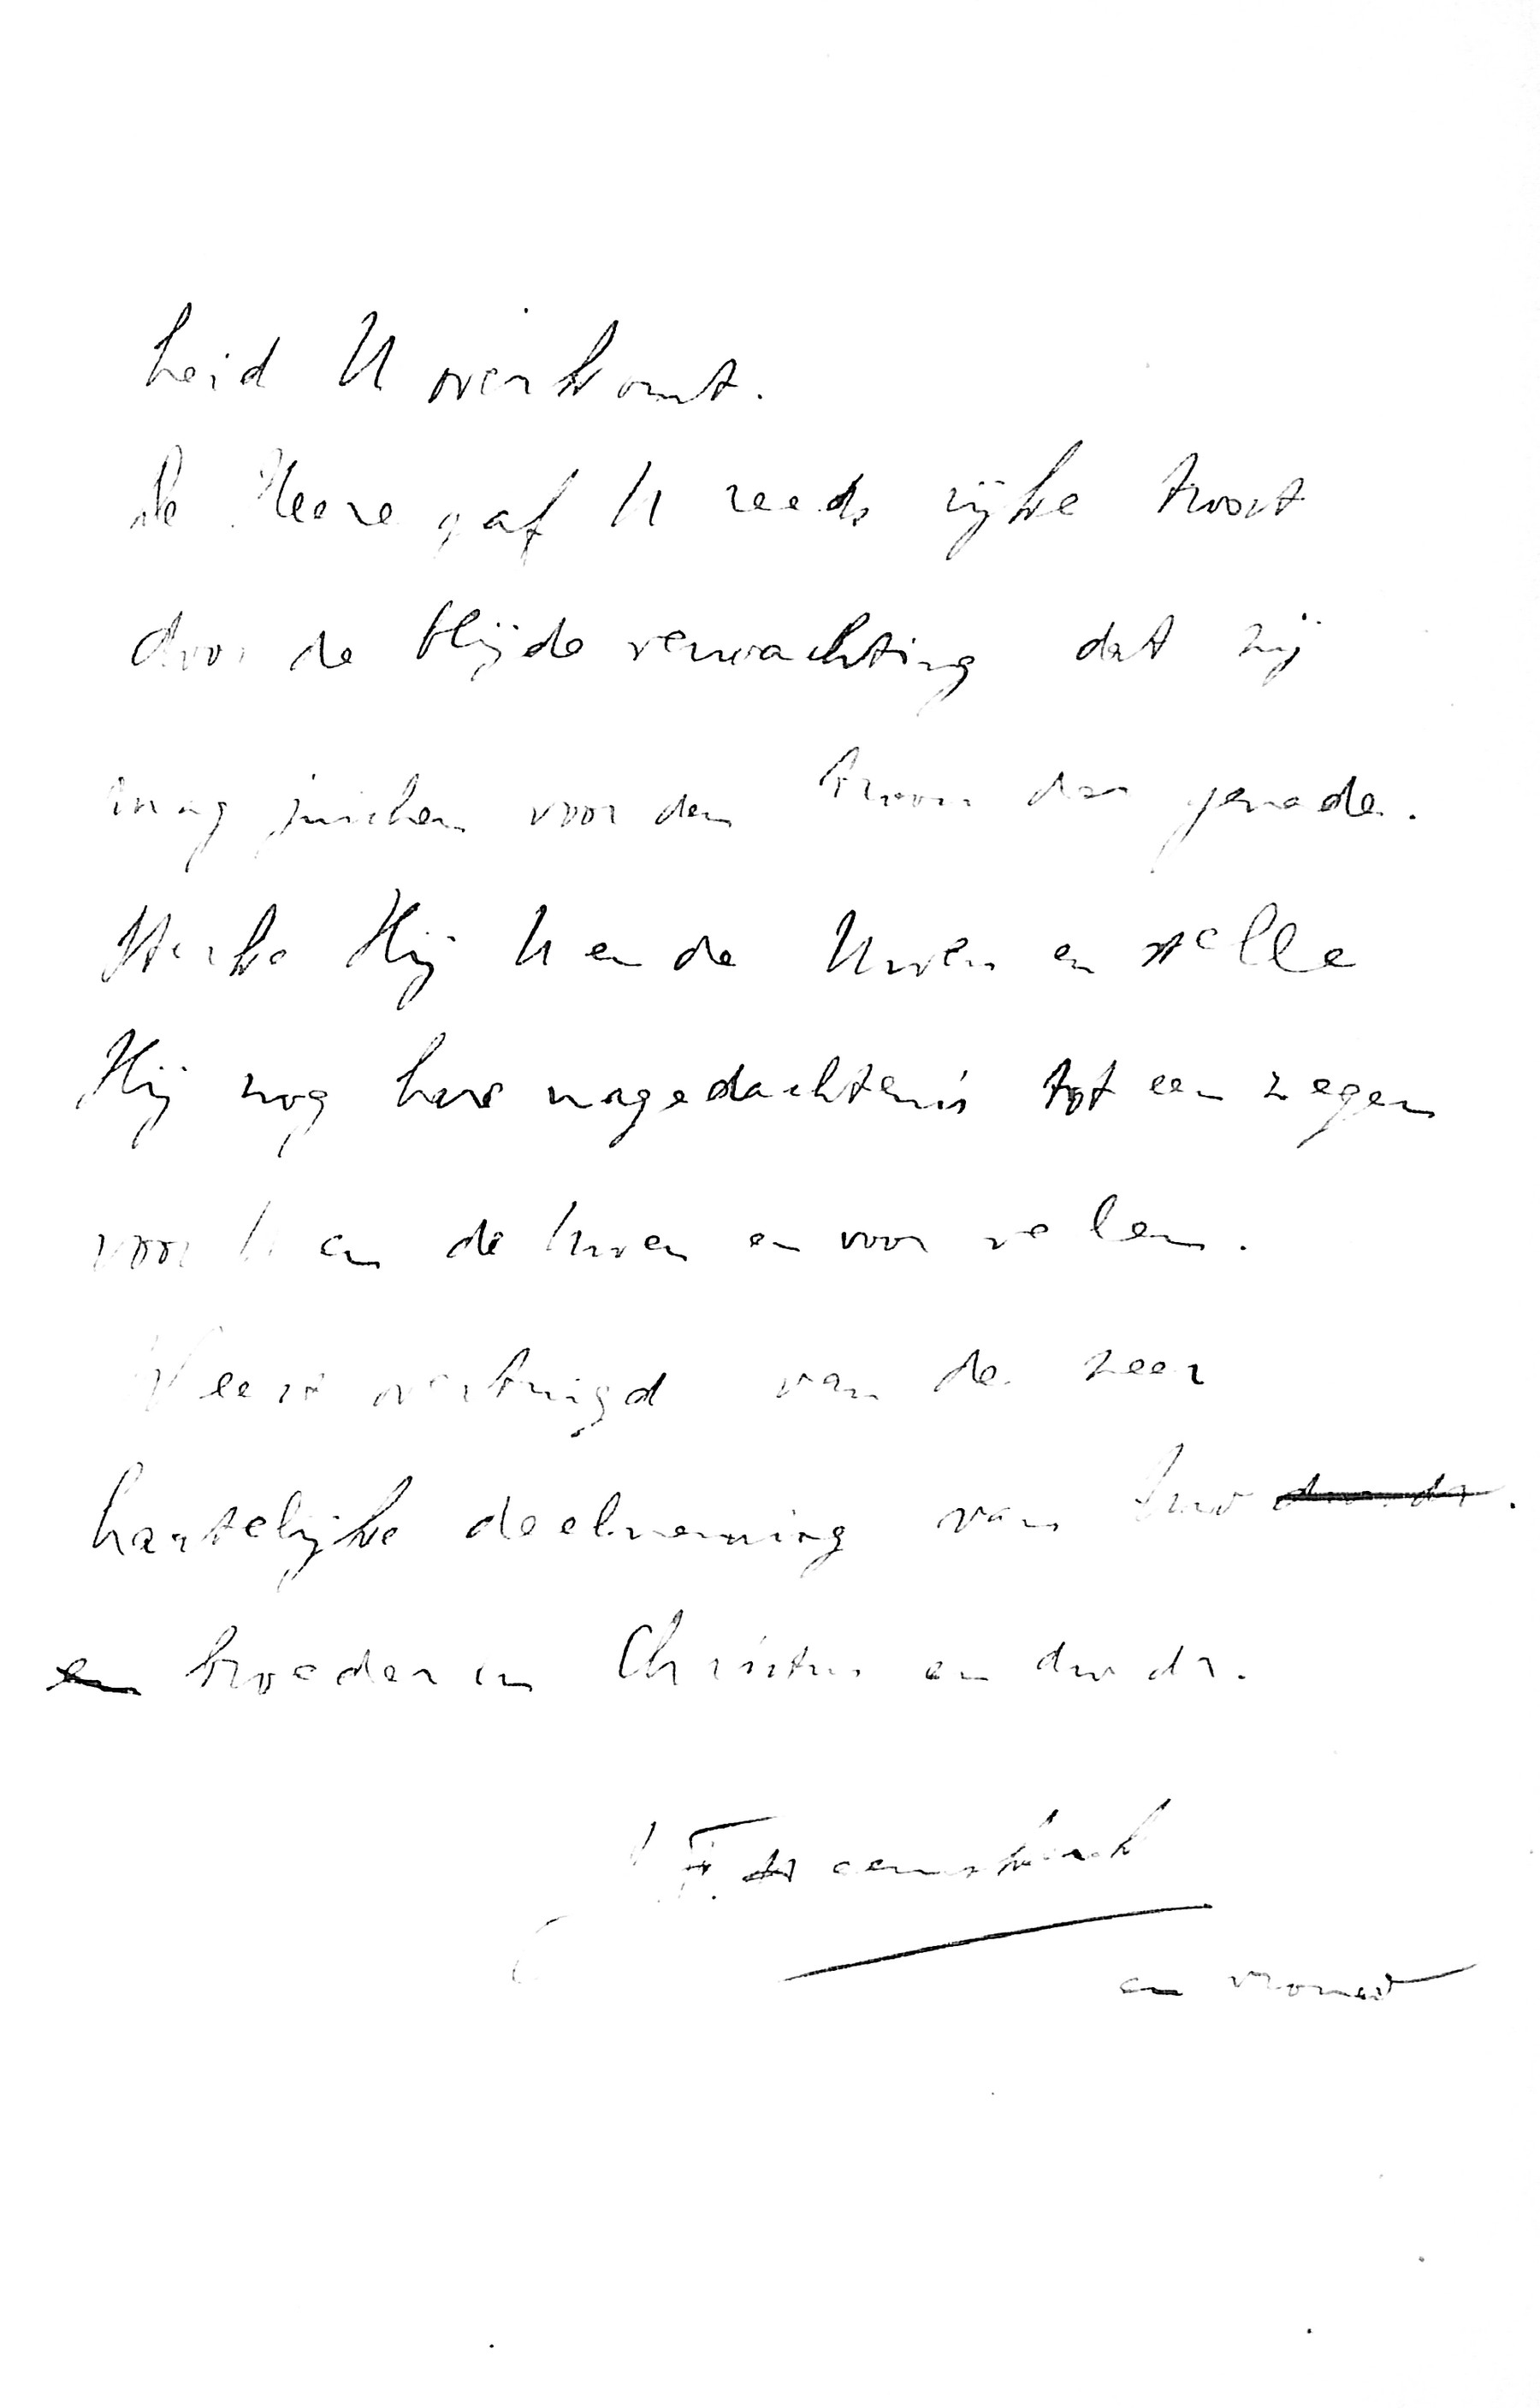 heid U overkomt.
De Heere gaf U reeds rijke troost
door de blijde verwachting dat zij
mag juichen voor den troon der genade.
Sterke Hij U en de Uwen en stelle
Hij nog hare nagedachtenis tot een zegen
voor U en de Uwen en voor velen.
Wees overtuigd van de zeer
hartelijke deelneming van Uw dw. dr.
en broeder in Christus en dw dr.
F. Heemskerk
en vrouw